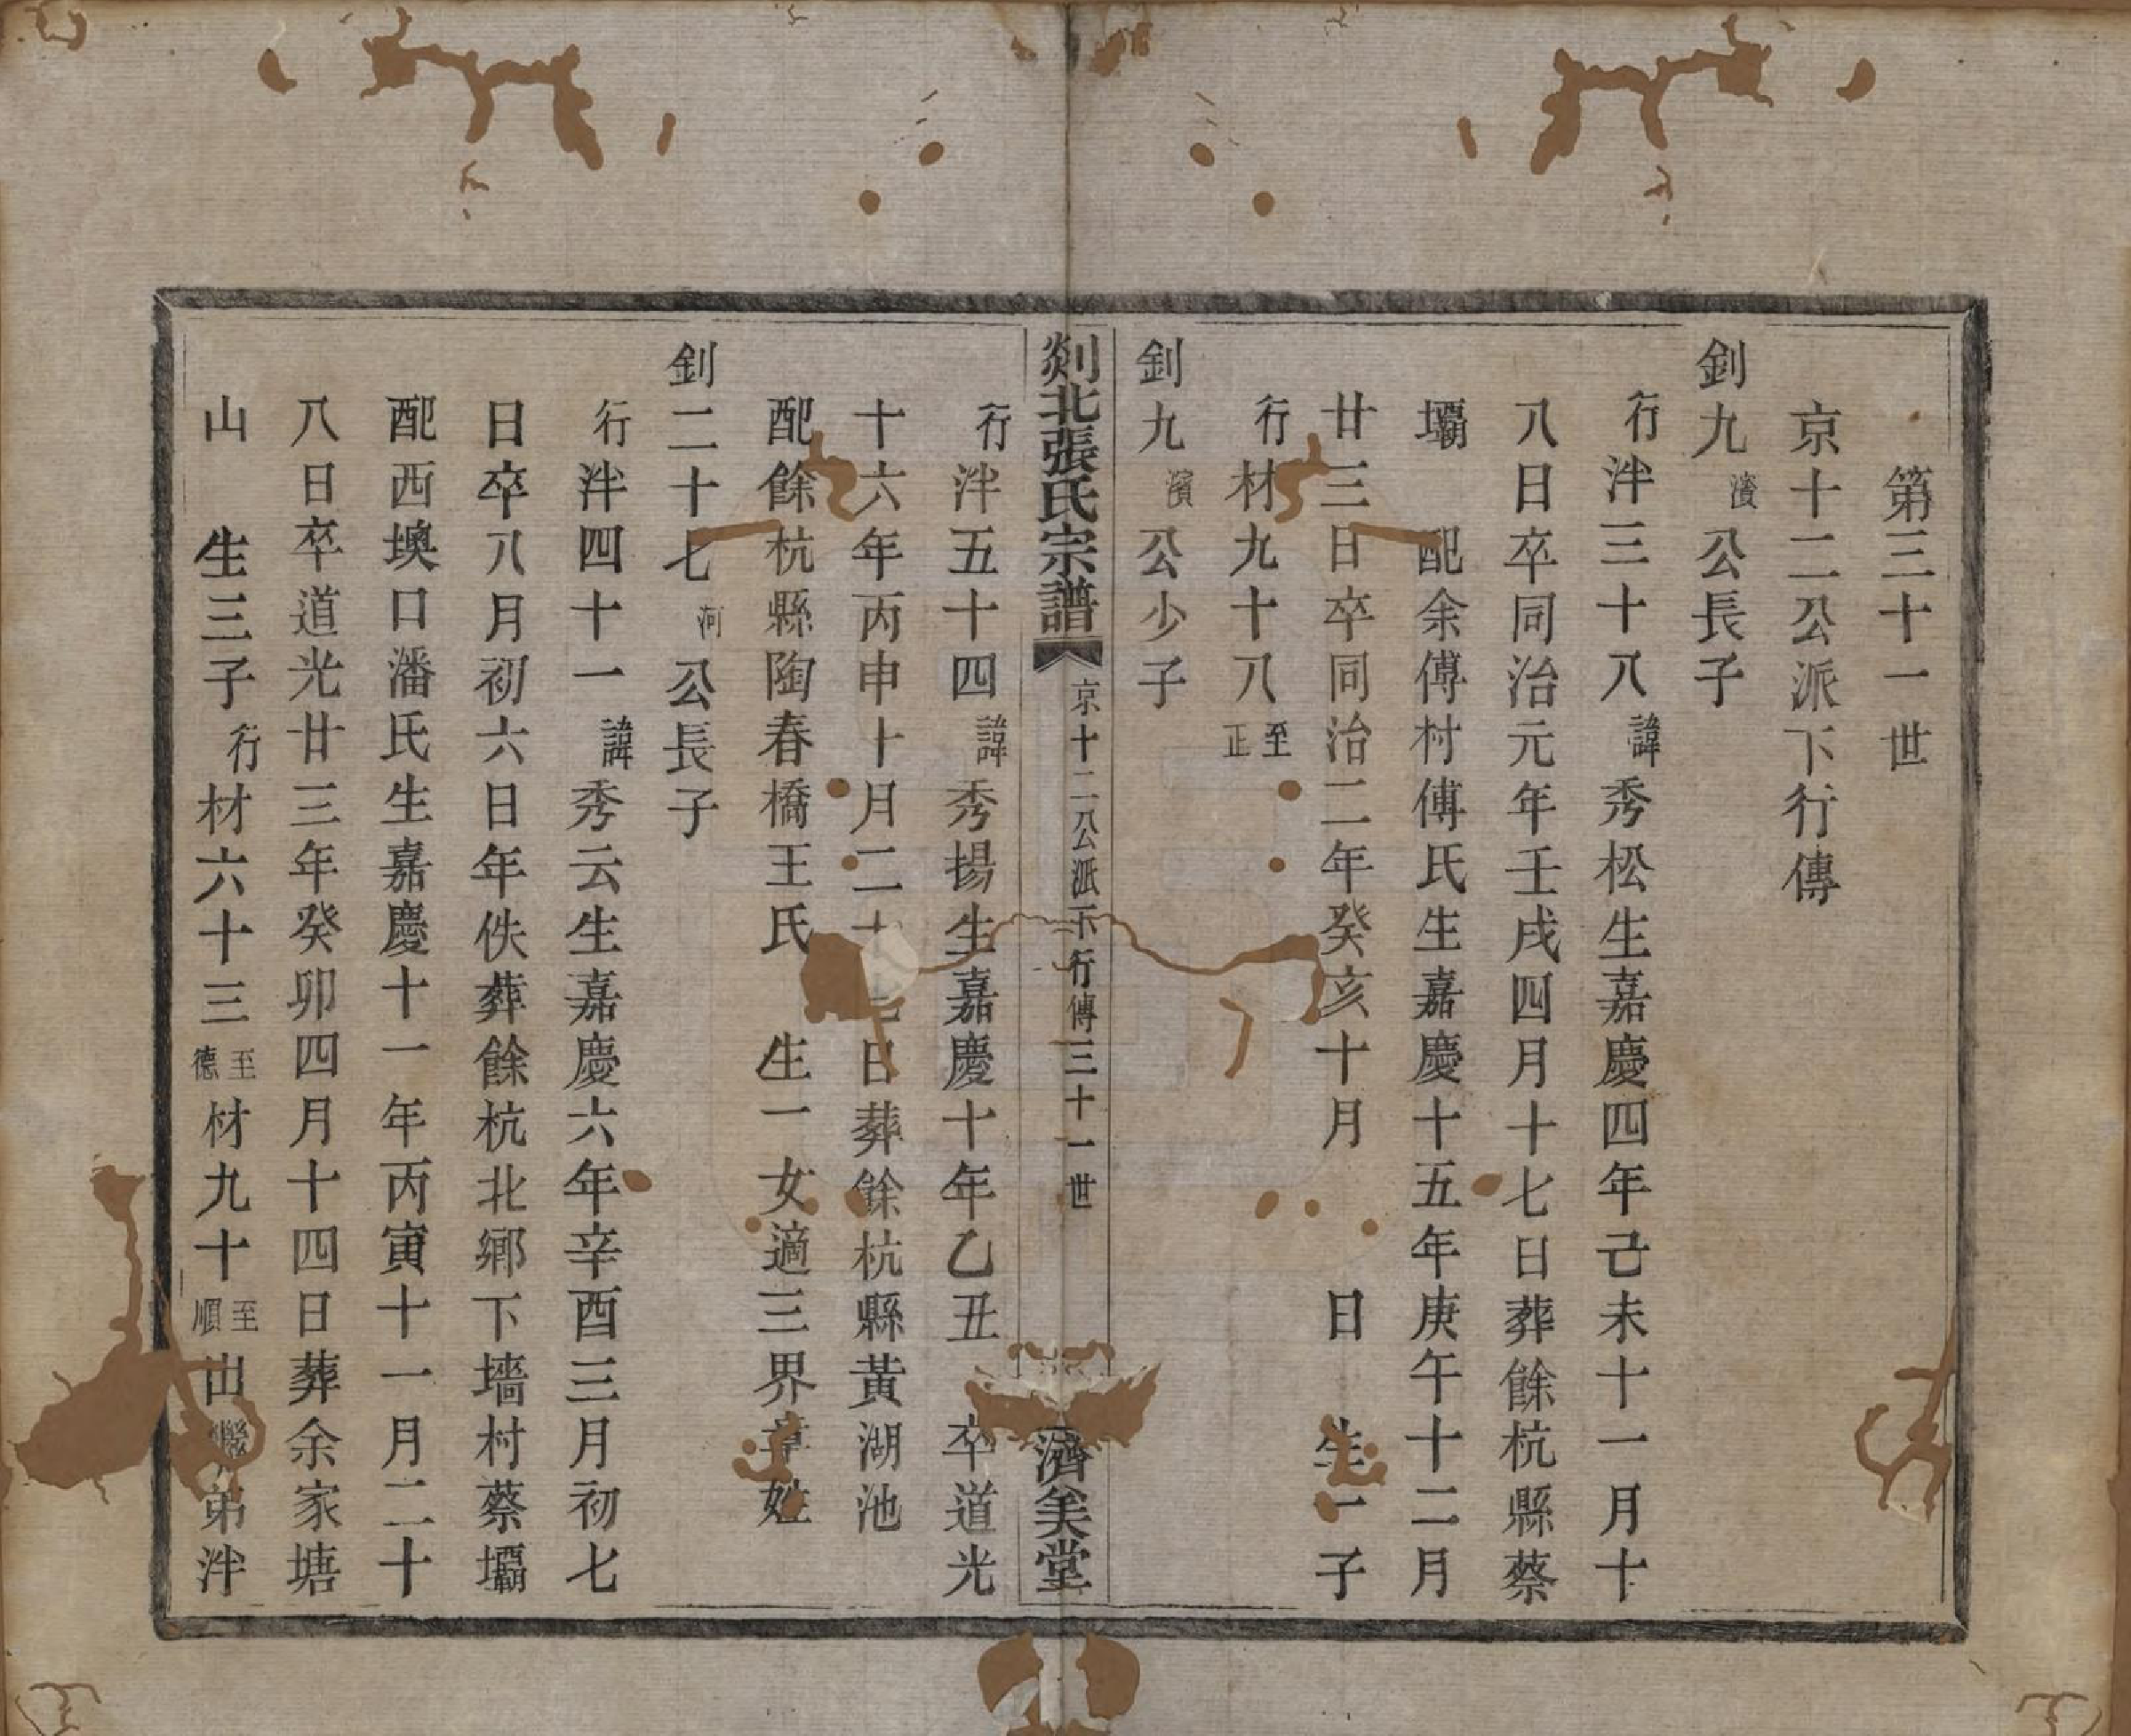 第三十一世
京十二公派下行傳
釗九濱公長子
行泮三十八諱秀松生嘉慶四年己未十一月十
八日卒同治元年壬戌四月十七日葬餘杭縣蔡
壩 配余傅村傅氏生嘉慶十五年庚午十二月
廿三日卒同治二年癸亥十月 日 生一子
行材九十八至正
釗九濱公少子
剡北張氏宗譜 京十二公派下行傳三十一世 濟美堂
行泮五十四諱秀揚生嘉慶十年乙丑 卒道光
十六年丙申十月二十七日葬餘杭縣黃湖池
配餘杭縣陶春橋王氏 生一女適三界章姓
釗二十七河公長子
行泮四十一諱秀云生嘉慶六年辛酉三月初七
日卒八月初六日年佚葬餘杭北鄉下墻村蔡壩
配西墺口潘氏生嘉慶十一年丙寅十一月二十
八日卒道光廿三年癸卯四月十四日葬余家塘
山 生三子行材六十三至德材九十至順出繼弟泮